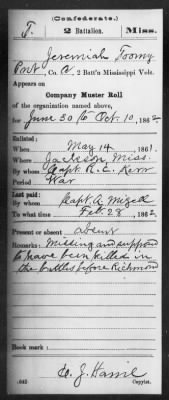 (Confederate.)
T. 2 Battalion. Miss.
Jeremiah Toomy
Pvt, Co. C, 2 Batt'n Mississippi Vols.
Appears on
Company Muster Roll
of the organization named above,
for June 30 to Oct. 10, 1862
Enlisted:
When May 14, 1861.
Where Jackson, Miss.
By whom Capt. R. E. Kerr
Period War
Last paid:
By whom Capt. A. Mizell
To what time Feb. 28, 1862
Present or absent absent
Remarks: Missing and supposed
to have been killed in
the battles before Richmond
Book mark:
(642)
Copyist.